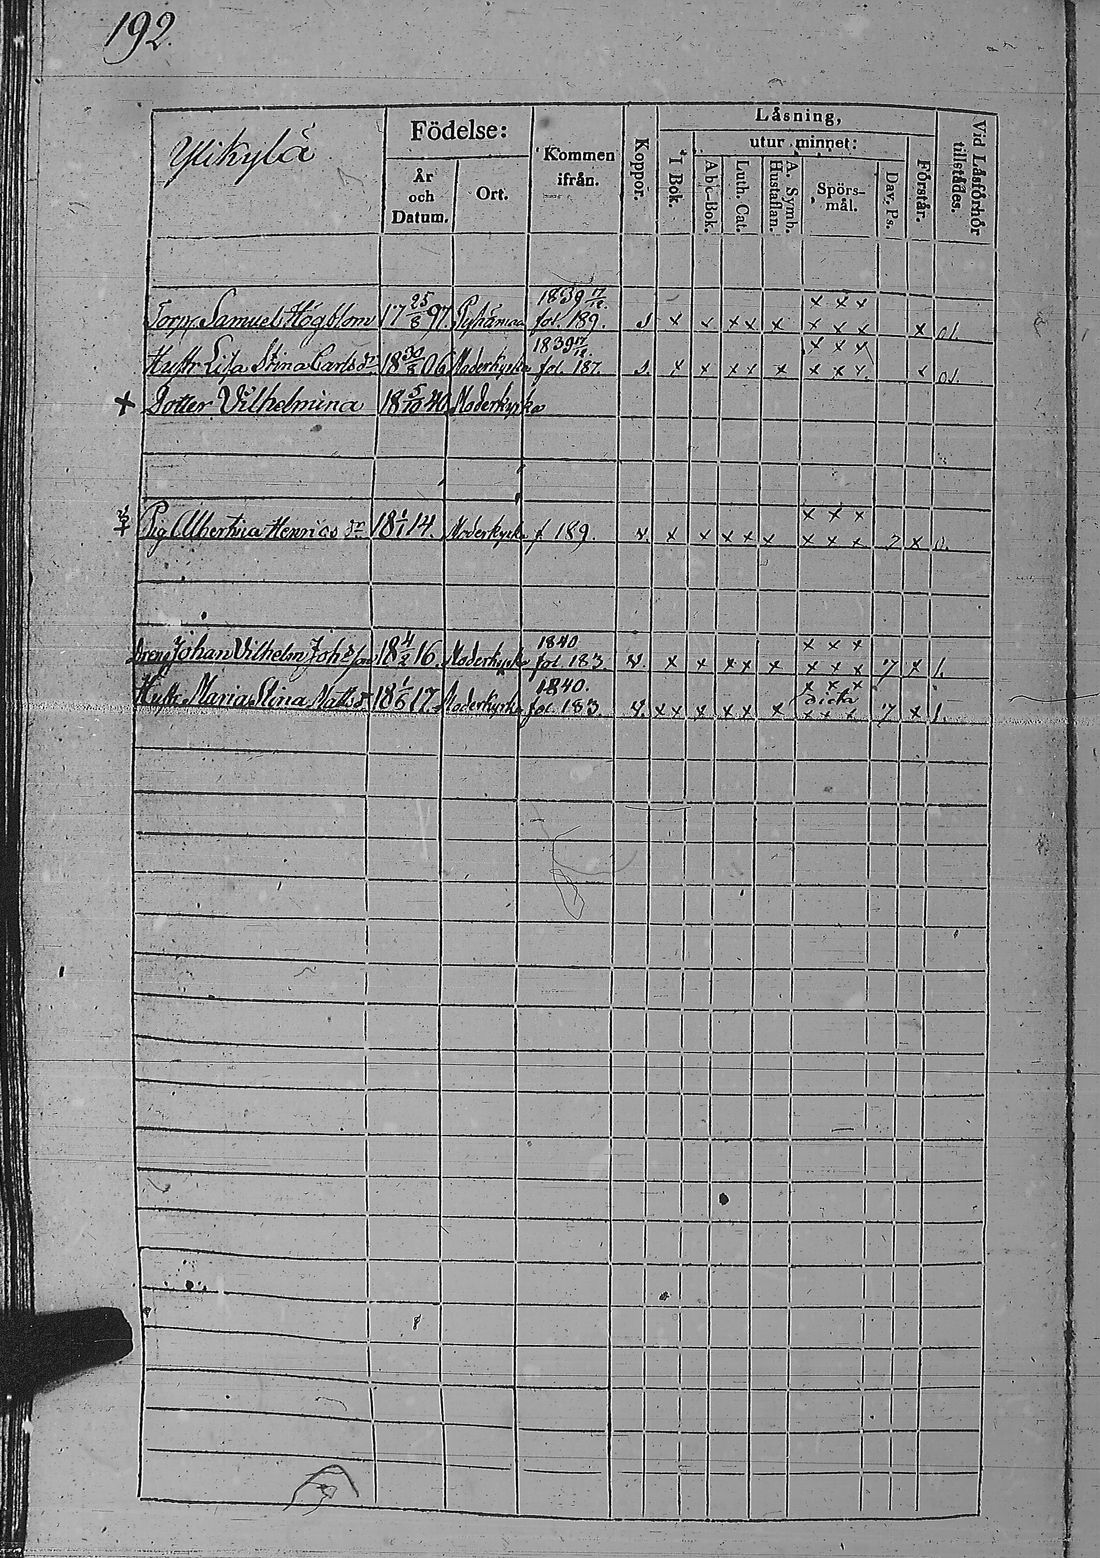 192.
Ylikylä
Födelse:
År och Datum.
Ort.
Kommen ifrån.
Koppor.
Läsning,
I Bok.
utur minnet:
Abc-Bok.
Luth. Cat.
A. Symb. Hustaflan.
Spörs-mål.
Dav. Ps.
Förstår.
Vid Läsförhör tillstädes.
1839 17/12. x x x
Torp. Samuel Högblom 17 25/8 97. Pyhämaa fol. 189. s x x xx x x x x x
1839 17/12. x x x
Hustr. Lisa Stina Carlsdr 18 30/8 06 Moderkyrka fol. 187. s. x x xx x x x x. x
+ Dotter Vilhelmina 18 5/10 40 Moderkyrka
x x x
Pig. Albertina Henricsdr 18 1/1 14. Moderkyrk. f. 189. v. x x xxx x x x x 7 x
1840 x x x
Dreng Johan Vilhelm Joh:sson 18 4/2 16. Moderkyrka fol. 183. v. x x xx x x x x 7 x 1.
1840. x x x
Hustr. Maria Stina Mattsdr 18 1/6 17. Moderkyrka fol. 183. v. xx x xx x x x x 7 x 1.